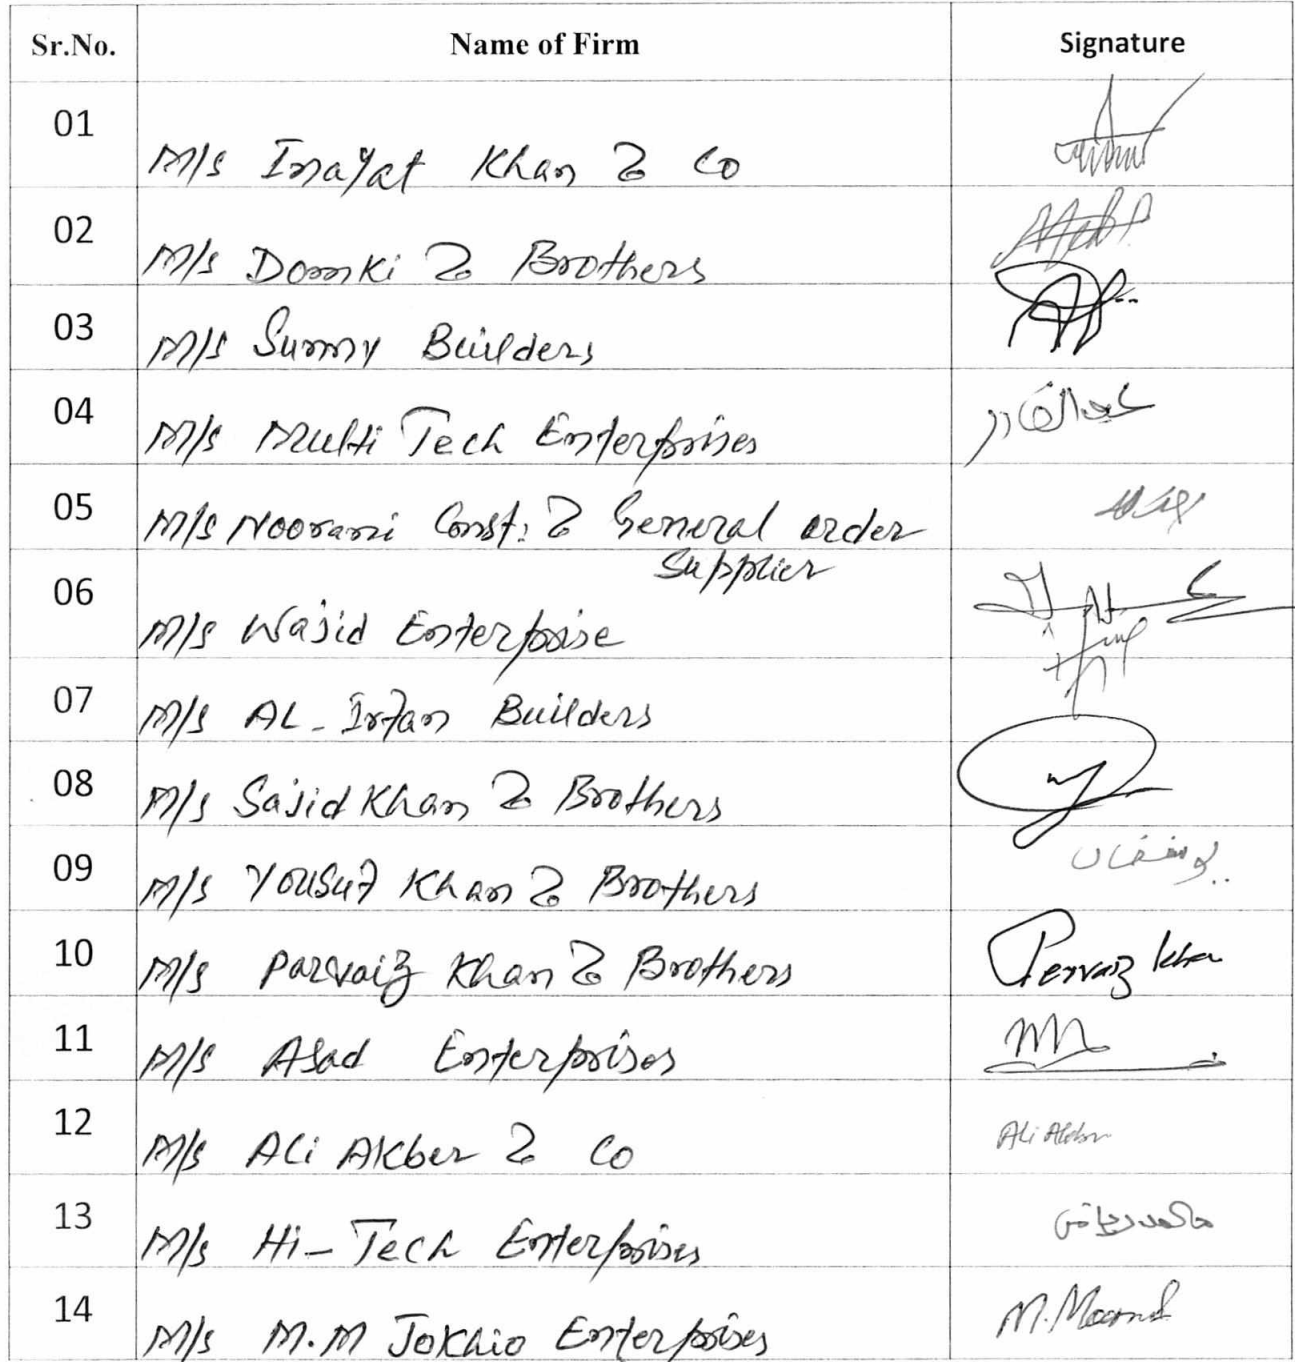 Sr.No. Name of Firm Signature
01 M/s Inayat Khan & Co
02 M/s Domki & Brothers
03 M/s Sunny Builders
04 M/s Multi Tech Enterprises عبدالقادر
05 M/s Noorani Const: & General order
Supplier
06 M/s Wajid Enterprise
07 M/s AL-Irfan Builders
08 M/s Sajid Khan & Brothers
09 M/s Yousuf Khan & Brothers يوسف خان
10 M/s Parvaiz Khan & Brothers Pervaiz khan
11 M/s Asad Enterprises
12 M/s Ali Akber & Co Ali Akber
13 M/s Hi-Tech Enterprises
14 M/s M.M Jokhio Enterprises